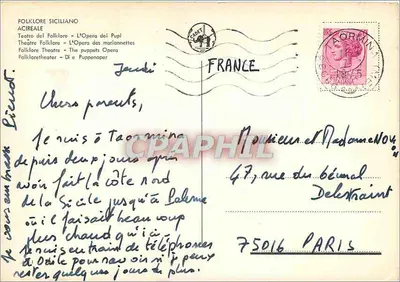 FOLKLORE SICILIANO
ACIREALE
Teatro del Folklore - L'Opera dei Pupi
Theatre Folklore - L'Opera des marionnettes
Folklore Theatre - The puppets Opera
Folkloretheater - Die Puppenoper
Jeudi
FRANCE
Chers parents,
Je suis à Taormina
depuis deux jours après
avoir fait la côte Nord
de la Sicile jusqu'à Palerme
où il faisait beaucoup
plus chaud qu'ici
Je suis en train de téléphoner
à Odile pour savoir si je peux
rester quelques jours de plus.
Je vous embrasse
Monsieur et Madame
47, rue du Général
Delestraint
75016 PARIS
CPAPHIL
TAORMINA